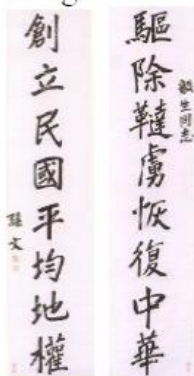 驅除韃虜恢復中華
毅生同志
創立民國平均地權
孫文